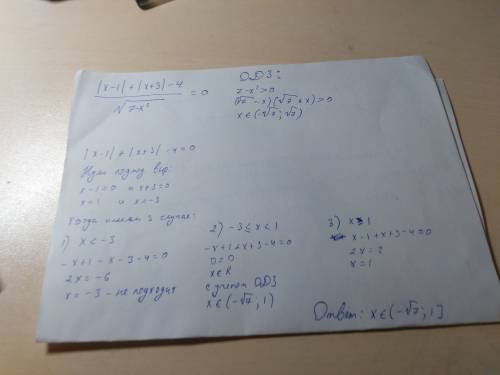 |x-1| + |x+3| - 4
√7-x² = 0
ОДЗ:
7-x²>0
(√7-x)(√7+x)>0
x∈(-√7; √7)
|x-1| + |x+3| - 4=0
Нули подмод выр:
x-1=0 и x+3=0
x=1 и x=-3
Тогда имеем 3 случая:
1) x<-3
-x+1-x-3-4=0
2x=-6
x=-3 - не подходит
2) -3≤x<1
-x+1+x+3-4=0
0=0
x∈R
с учетом ОДЗ
x∈(-√7; 1)
3) x≥1
x-1+x+3-4=0
2x=2
x=1
Ответ: x∈(-√7; 1]